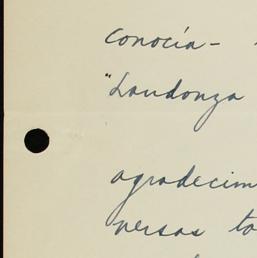 conocía-
"Landonza
agradecim
versos to